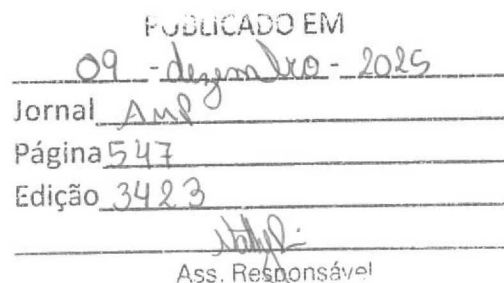 PUBLICADO EM
09 - dezembro - 2025
Jornal AMP
Página 547
Edição 3423
Ass. Responsável